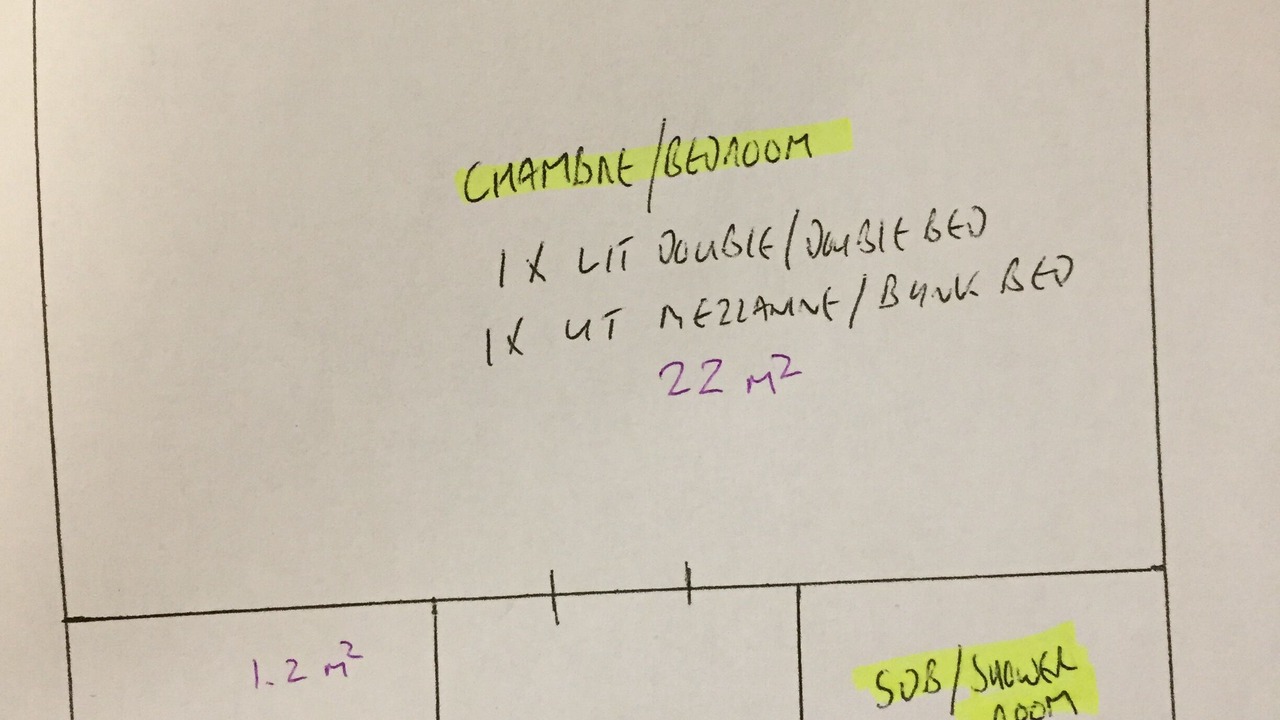 CHAMBRE/BEDROOM
1 X LIT DOUBLE/DOUBLE BED
1 X LIT MEZZANINE/BUNK BED
22 m²
1.2 m²
SDB/SHOWER
ROOM